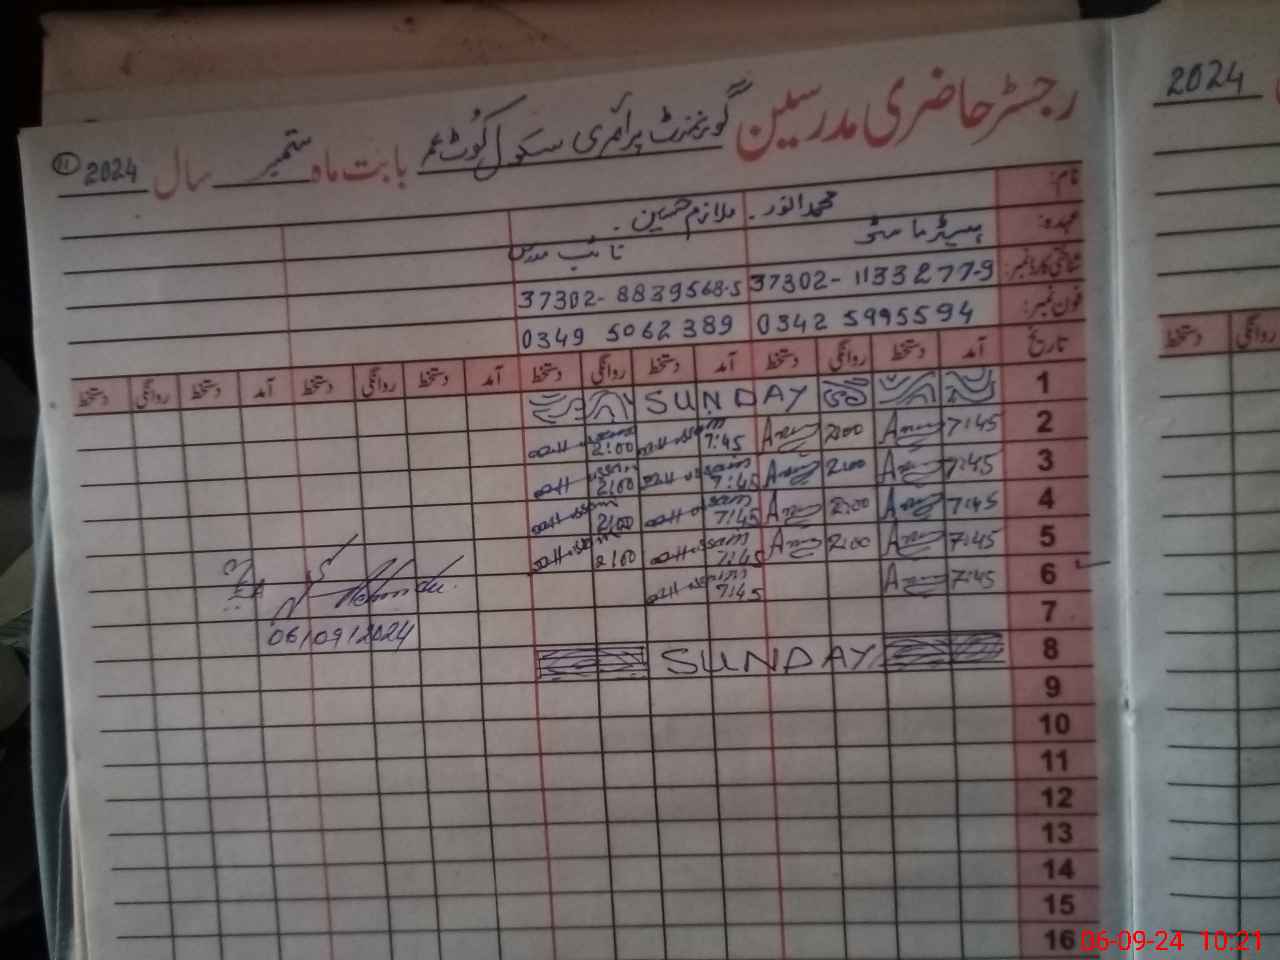 رجسٹر حاضری مدرسین گورنمنٹ پرائمری سکول کوٹ عمر بابت ماہ ستمبر سال 2024 11
نام: محمد انور۔ ملازم حسین۔
عہدہ: ہیڈ ماسٹر نائب مدرس
شناختی کارڈ نمبر: 37302-1133277-9 37302-8839568-5
فون نمبر: 0342 5995594 0349 5062389
تاریخ آمد دستخط روانگی دستخط آمد دستخط روانگی دستخط آمد دستخط روانگی دستخط آمد دستخط روانگی دستخط
1 SUNDAY
2 7:45 2:00 7:45 2:00
3 7:45 2:00 7:45 2:00
4 7:45 2:00 7:45 2:00
5 7:45 2:00 7:45 2:00
6 7:45 7:45
7
06/09/2024
8 SUNDAY
9
10
11
12
13
14
15
16
2024
روانگی دستخط
06-09-24 10:21